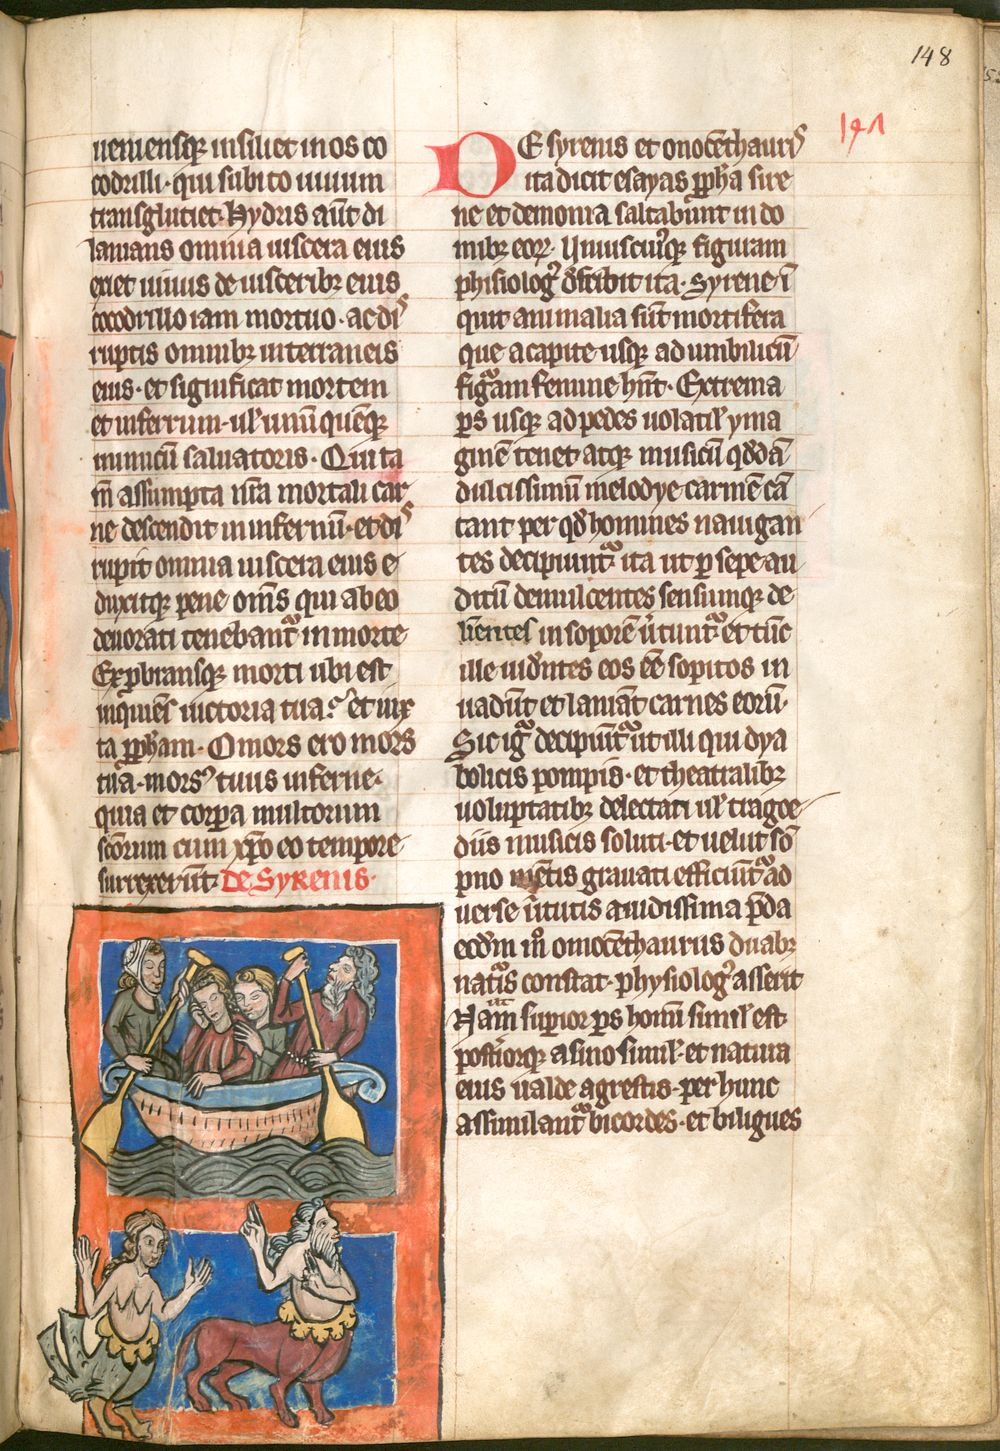 148
191
ueniensq; insiliet in os co
codrilli · qui subito uiuum
transglutiet · Hydris aut̄ di
lanians omnia uiscera eius
exiet uiuus de uisceribꝫ eius
cocodrillo iam mortuo · ac di
ruptis omnibꝫ interraneis
eius · et significat mortem
et infernum · ul' unū quēq;
inimicū saluatoris · Qui ta
m̄ assumpta nr̄a mortali car
ne descendit in infernū · et di
rupit omnia uiscera eius e
duxitq; pene om̄s qui ab eo
deuorati tenebant᷑ in morte
Exp̱bransq; morti ubi est
inquiens uictoria tua · et iux
ta ꝓph̄am · O mors ero mors
tua · morsꝰ tuus inferne ·
quia et corꝑa multorum
sc̄orum cum xp̄o eo tempore
surrexerūt · de Syrenis ·
DE syrenis et onocēthauris
ita dicit esayas ꝓph̄a sire
ne et demonia saltabunt in do
mibꝫ eoꝝ · Uniuscuiꝰq; figuram
phisiologꝰ d'scribit ita · Syrene ī
quit animalia sūt mortifera
que a capite usq; ad umbilicū
figᵃam femine hn̄t · Extrema
ꝑs usq; ad pedes uolatil' yma
ginē tenet atq; musicū qd'dā
dulcissimū melodye carmē cā
tant per qd' homines nauigan
tes decipiunt᷑ ita ut ꝑ sepe au
ditū demulcentes sensumq; de
lientes in soporē ūtunt᷑ et tūc
ille uid'ntes eos eē sopitos in
uadūt et laniāt carnes eorū ·
Sic igᷓ decipiūt᷑ ut illi qui dya
bolicis pompis · et theatralibꝫ
uoluptatibꝫ delectati ul' tragoe
diis musicis soluti · et uelut sō
pno mētis grauati efficiūt᷑ ad
uerse ūtutis auidissima p̄da
eod'm m̊ onocēthaurus duabꝫ
natᷓis constat · physiologꝰ asserit
ut
Nam suꝑior ꝑs homī simil' est
post'iorq; asino simil' · et natura
eius ualde agrestis · per hunc
assimilant᷑ bicordes · et biligues